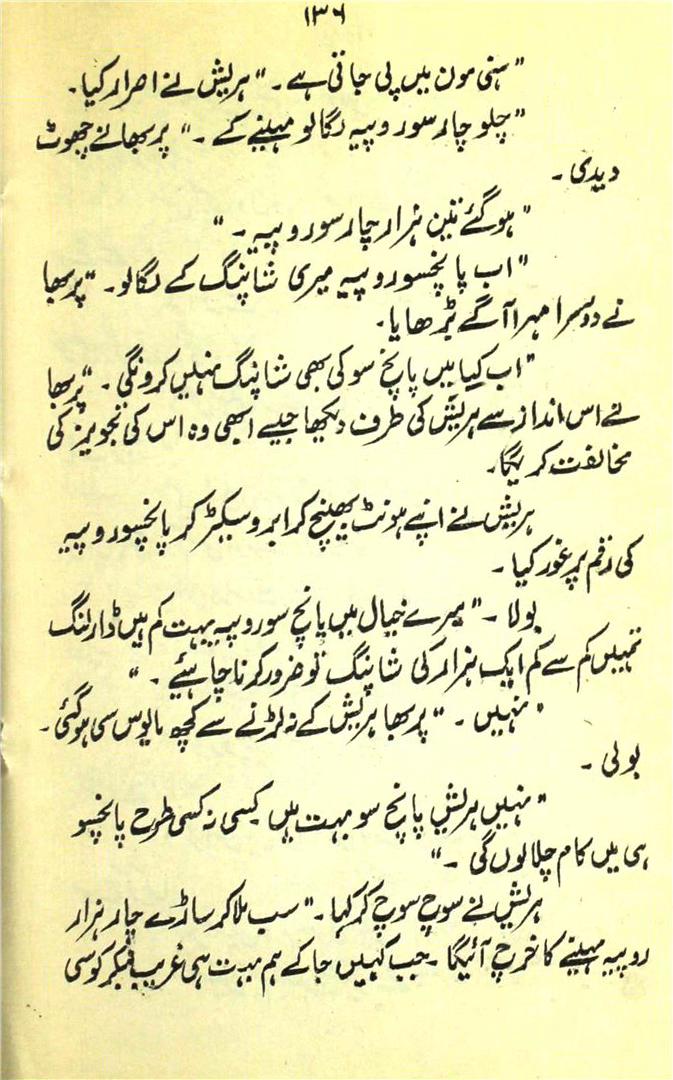 ۱۳۶
"ہنی مون میں پی جاتی ہے۔" ہریش نے اصرار کیا۔
"چلو چار سو روپیہ لگا لو مہینے کے۔" پربھا نے چھوٹ
دیدی۔
"ہو گئے تین ہزار چار سو روپیہ۔"
"اب پانچسو روپیہ میری شاپنگ کے لگا لو۔" پربھا
نے دوسرا مہرا آگے بڑھایا۔
"اب کیا میں پانچ سو کی بھی شاپنگ نہیں کرونگی۔" پربھا
نے اس انداز سے ہریش کی طرف دیکھا جیسے ابھی وہ اس کی تجویز کی
مخالفت کریگا۔
ہریش نے اپنے ہونٹ بھینچ کر ابرو سیکڑ کر پانچسو روپیہ
کی رقم پر غور کیا۔
بولا۔ "میرے خیال میں پانچ سو روپیہ بہت کم ہیں ڈارلنگ
تمہیں کم سے کم ایک ہزار کی شاپنگ تو ضرور کرنا چاہئیے۔"
"نہیں۔" پربھا ہریش کے نہ لڑنے سے کچھ مایوس سی ہو گئی۔
بولی۔
"نہیں ہریش پانچ سو بہت ہیں کسی نہ کسی طرح پانچسو
ہی میں کام چلا لوں گی۔"
ہریش نے سوچ سوچ کر کہا۔ "سب ملا کر ساڑے چار ہزار
روپیہ مہینے کا خرچ آئیگا۔ جب کہیں جا کے ہم بہت ہی غریب سی